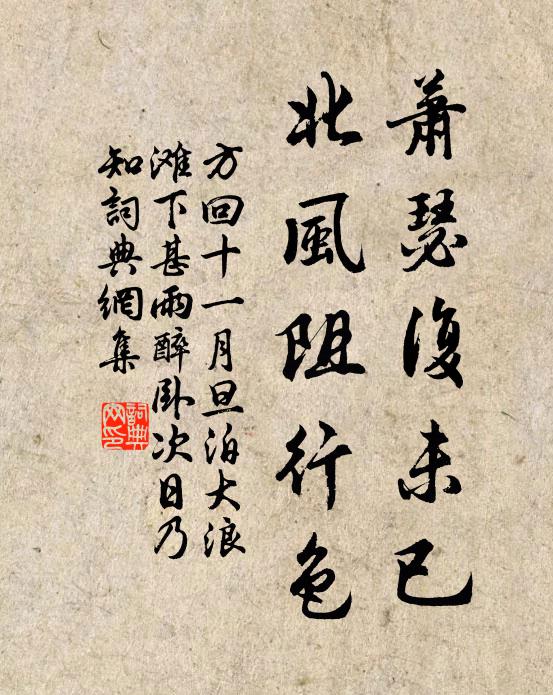 蕭瑟復未已
北風阻行色
方回十一月旦泊大浪
滩下甚雨醉卧次日乃
知詞典網集
詞典网印